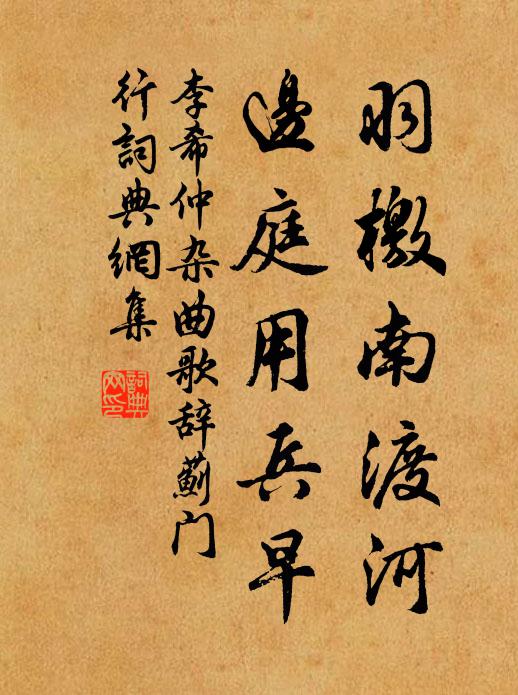 羽檄南渡河
邊庭用兵早
李希仲杂曲歌辞薊门
行詞典網集
詞典
网印